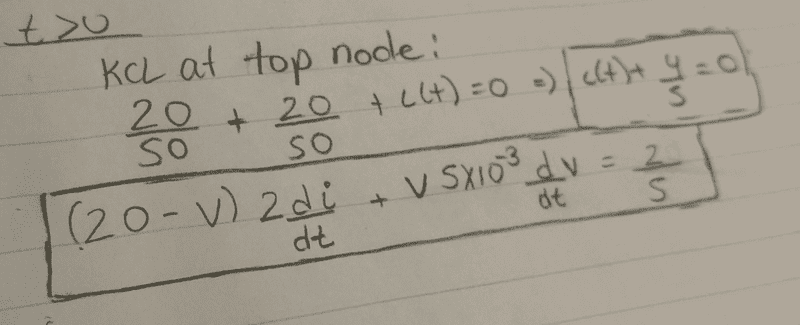 t>0
KCL at top node:
20/50 + 20/50 + i(t) = 0 => i(t) + 4/5 = 0
(20 - V) 2 di/dt + V 5x10^-3 dv/dt = 2/5